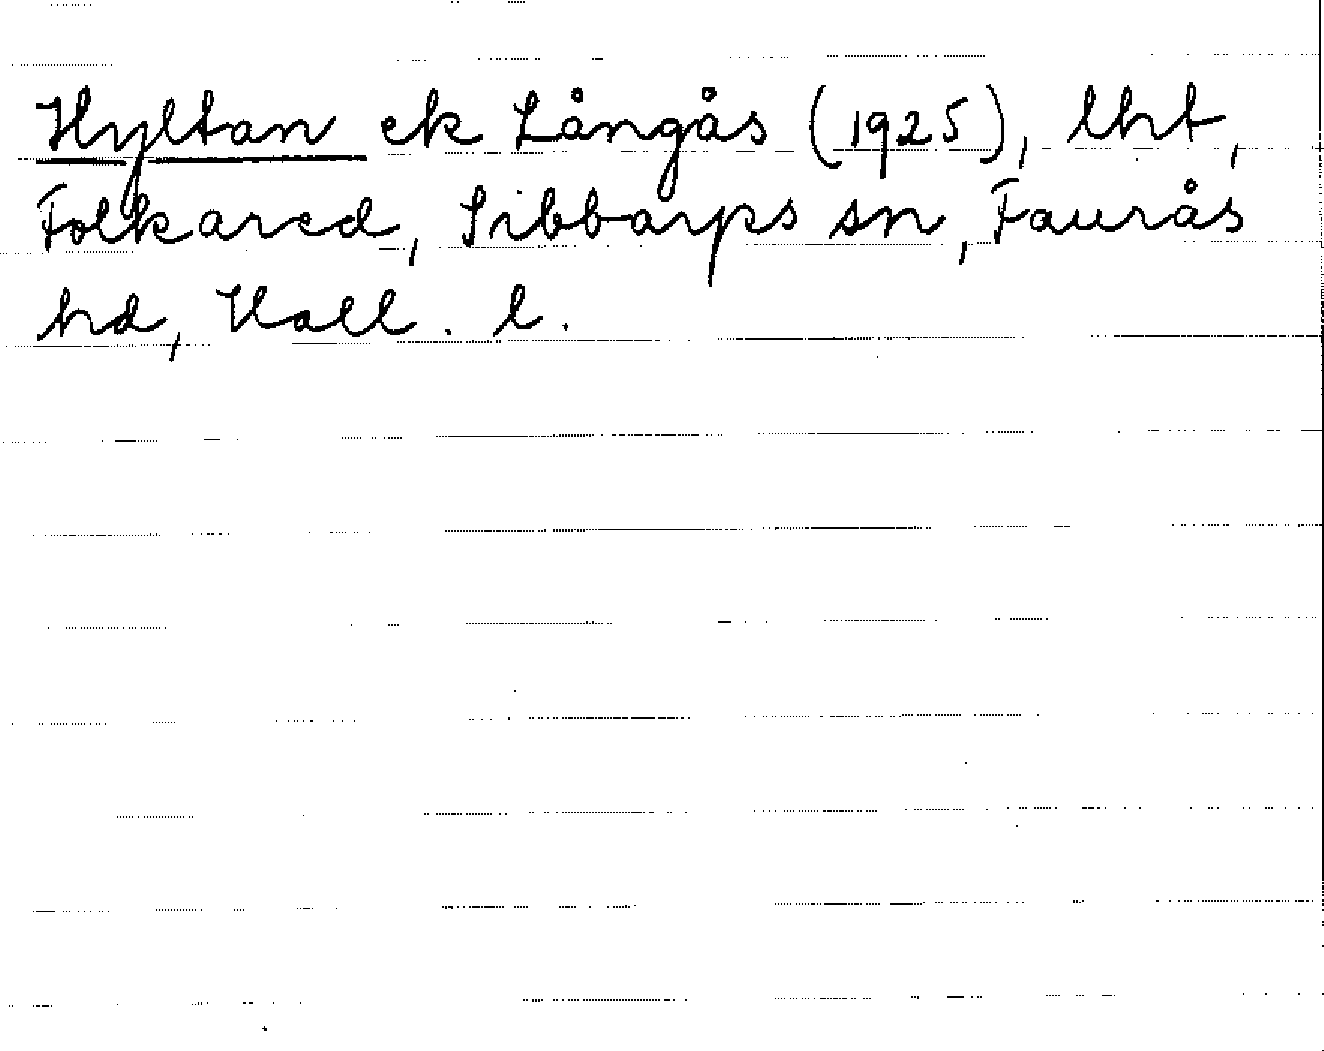 Hyltan ek Långås (1925), lht,
Folkared, Sibbarps sn, Faurås
hd, Hall. l.